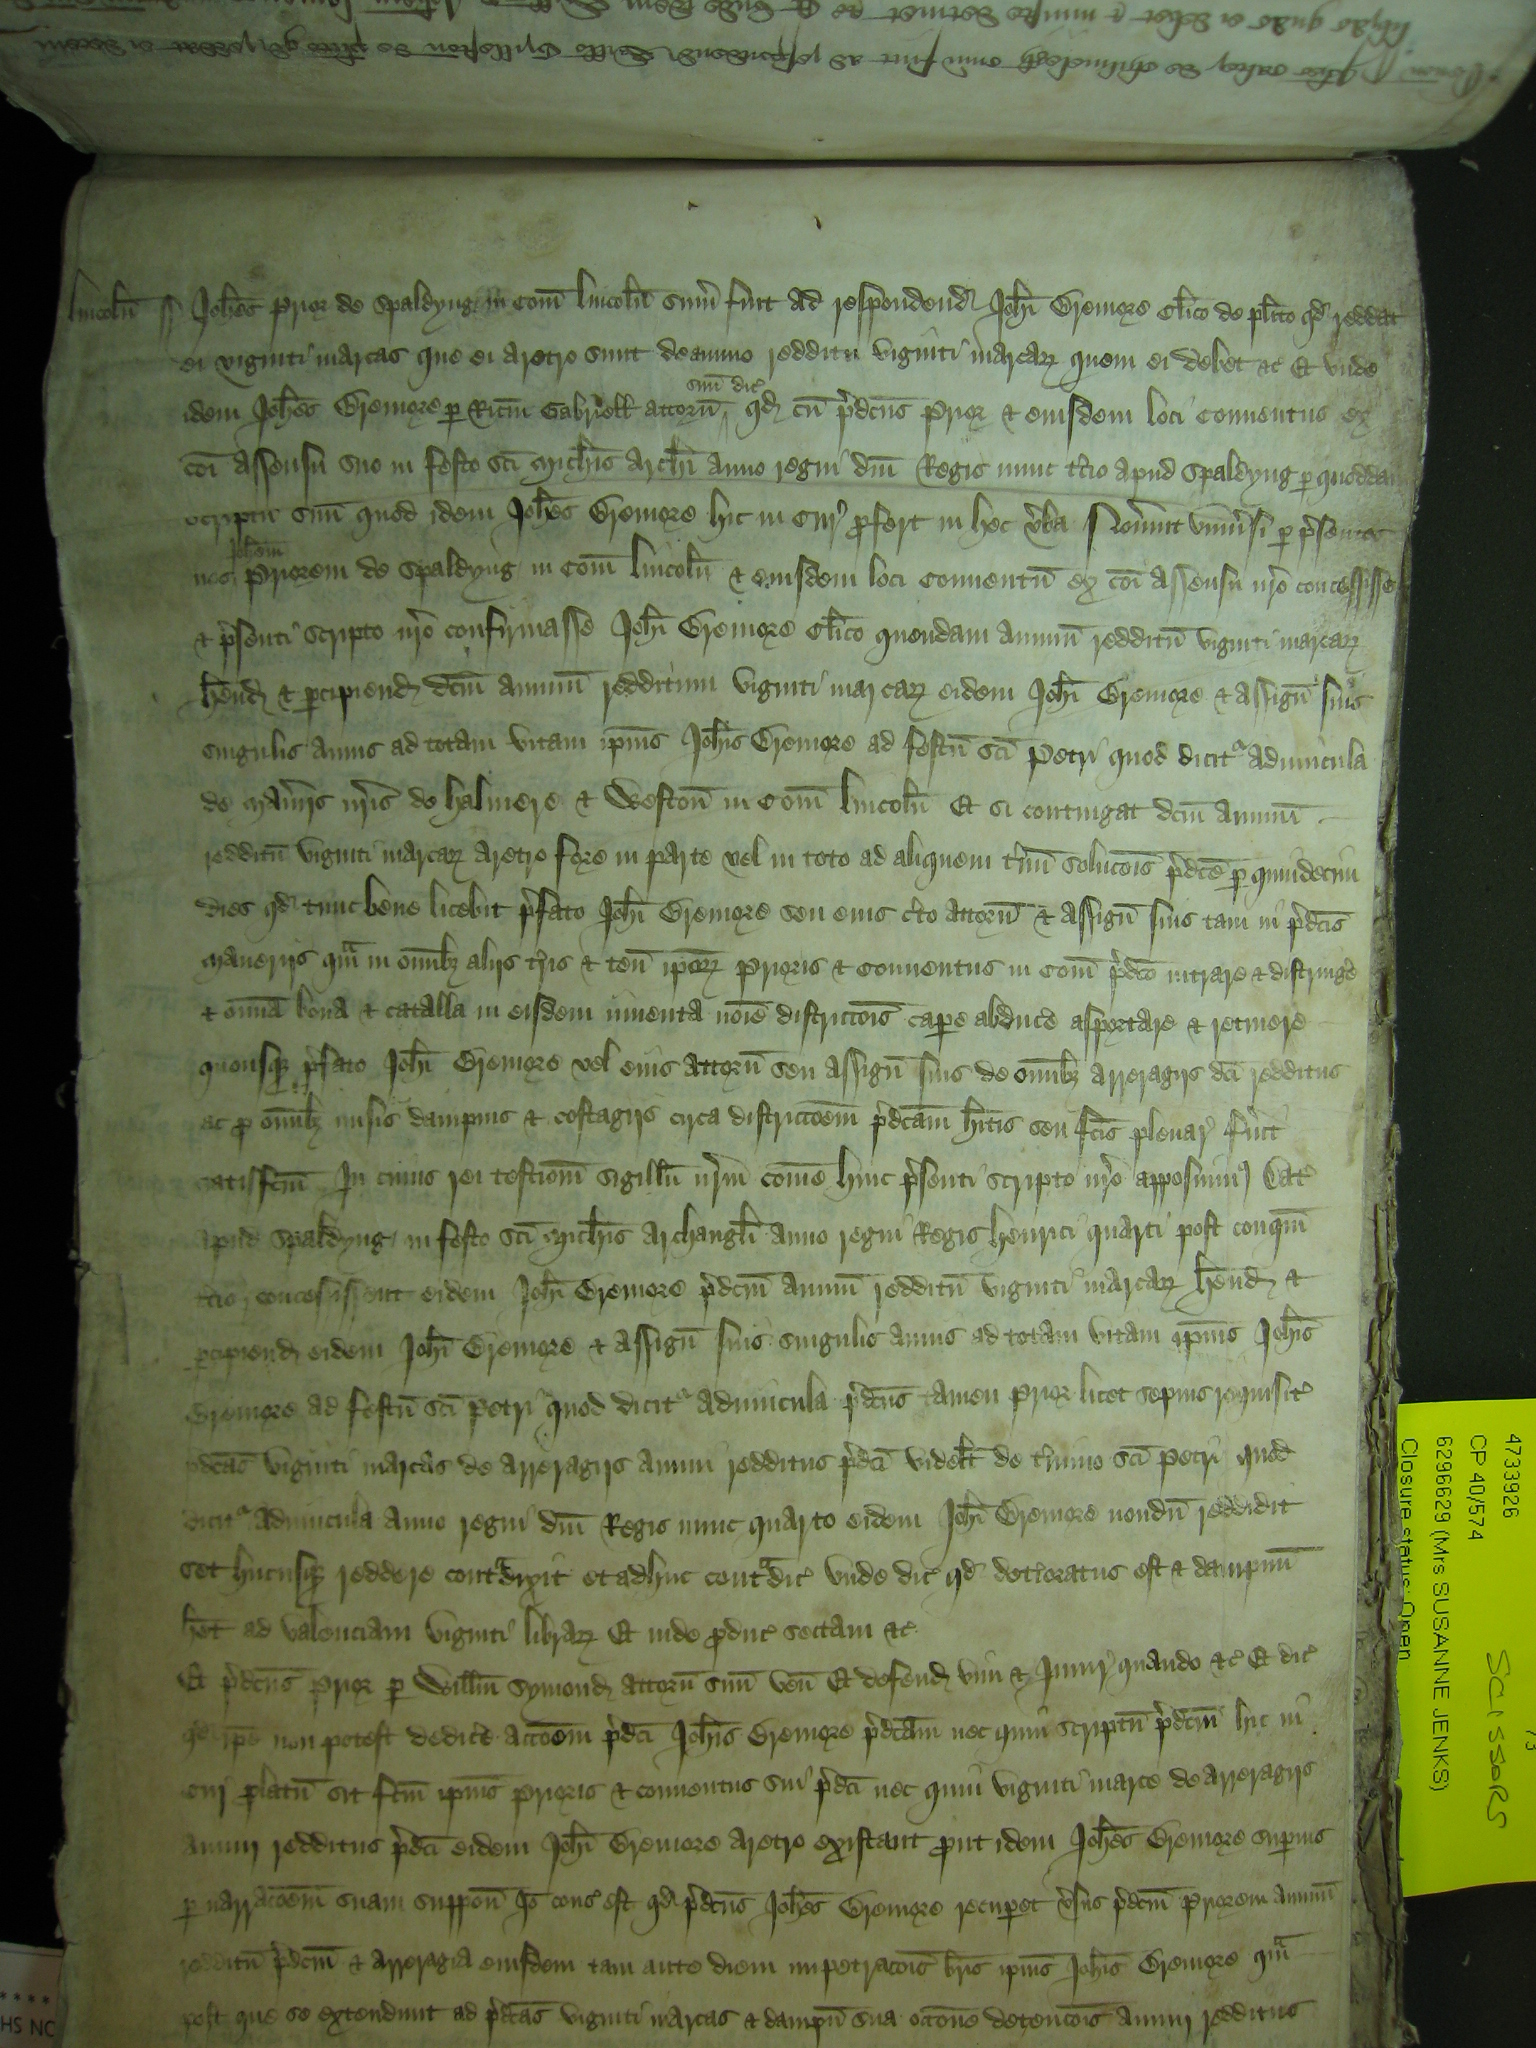 lincoln̄ ss Joh̄es Prior de Spaldyng in Com̄ lincoln̄ sum̄ fuit ad respondend Joh̄i Gremore cl̄ico de pl̄ito qd reddat
ei viginti marcas que ei aretro sunt de annuo redditu viginti marcar̄ quem ei debet &c Et unde
idem Joh̄es Gremore p Ric̄m Gabriell attorn̄ suū dic̄ qd cū p̄dcūs Prior & eiusdem loci Conventus ex
cōi assensu suo in festo sc̄i Mich̄is Arch̄i anno regni dn̄i Regis nunc t̄cio apud Spaldyng p quoddam
scriptū suū quod idem Joh̄es Gremore hic in Cur̄ p̄fert in hec v̄ba Nov̄int univ̄si p p̄sentes
nos Joh̄em Priorem de Spaldyng in Com̄ lincoln̄ & eiusdem loci Conventū ex cōi assensu nr̄o concessisse
& p̄senti scripto nr̄o confirmasse Joh̄i Gremore cl̄ico quendam annuū redditū viginti marcar̄
h̄end & pcipiend dcm̄ annuū redditum viginti marcar̄ eidem Joh̄i Gremore & assign̄ suis
singulis annis ad totam vitam ipīus Joh̄is Gremore ad festū sc̄i Petri quod dicit̄ Advincula
de Man̄iis nr̄is de halmere & Weston̄ in Com̄ lincoln̄ Et si contingat dcm̄ annuū
redditū viginti marcar̄ aretro fore in parte vel in toto ad aliquem t̄m̄ soluc̄ois p̄dc̄e p quindecim
dies qd tunc bene licebit p̄fato Joh̄i Gremore seu eius c̄to attorn̄ & assign̄ suis tam in p̄dc̄is
Maneriis qm̄ in om̄ibz aliis t̄ris & ten̄ ipōr̄ Prioris & Conventus in Com̄ p̄dc̄o intrare & distrinḡe
& om̄ia bona & catalla in eisdem inventa noīe districc̄ois cap̄e abduc̄e asportare & retinere
quousqz p̄fato Joh̄i Gremore vel eius attorn̄ seu assign̄ suis de om̄ibz arreragiis dc̄i redditus
ac p̄ om̄ibz misis dampnis & costagiis circa districc̄oem̄ p̄dc̄am h̄itis seu fc̄is plenar̄ fūit
satisfcm̄ In cuius rei testiom̄ sigillū nr̄m com̄e huic p̄senti scripto nr̄o apposuim̄ Dat̄
apud Spaldyng in festo sc̄i Mich̄is Archangl̄i anno regni Regis henrici quarti post conqm̄
t̄cio concessissent eidem Joh̄i Gremore p̄dcm̄ annuū redditū viginti marcar̄ h̄end &
pcipiend eidem Joh̄i Gremore & assign̄ suis singulis annis ad totam vitam ipīus Joh̄is
Gremore ad festū sc̄i Petri quod dicit̄ Advincula p̄dcūs tamen Prior licet sepius requisit̄
p̄dc̄as viginti marcas de arreragiis annui redditus p̄dc̄i videlt̄ de t̄mino sc̄i Petri quod
dicit̄ Advincula anno regni dn̄i Regis nunc quarto eidem Joh̄i Gremore nondū reddidit
set hucusqz reddere cont̄dixit et adhuc cont̄dic̄ unde dic̄ qd det̄ioratus est & dampnū
h̄et ad valenciam viginti librar̄ Et inde p̄duc̄ sectam &c
Et p̄dcūs Prior p Will̄m Symond attorn̄ suū ven̄ Et defend vim & Iniur̄ quando &c Et dic̄
qd ip̄e non potest dedic̄e acc̄oem̄ p̄dc̄i Joh̄is Gremore p̄dc̄am nec quin scriptū p̄dcm̄ hic in
Cur̄ p̄latū sit fcm̄ ipīus Prioris & conventus sui p̄dc̄i nec quin viginti marce de arreragiis
annui redditus p̄dc̄i eidem Joh̄i Gremore aretro existant p̄ut idem Joh̄es Gremore sup̄ius
p narrac̄oem̄ suam suppon̄ Iō cons̄ est qd p̄dcūs Joh̄es Gremore recup̄et v̄sus p̄dcm̄ Priorem annuū
redditū p̄dcm̄ & arreragia eiusdem tam ante diem impetrac̄ois br̄is ipīus Joh̄is Gremore qm̄
post que se extendunt ad p̄dc̄as viginti marcas & dampn̄ sua occōne detenc̄ois annui redditus
4733926
CP 40/574
6296629 (Mrs SUSANNE JENKS)
Closure status: Open
SCISSORS
HS NC